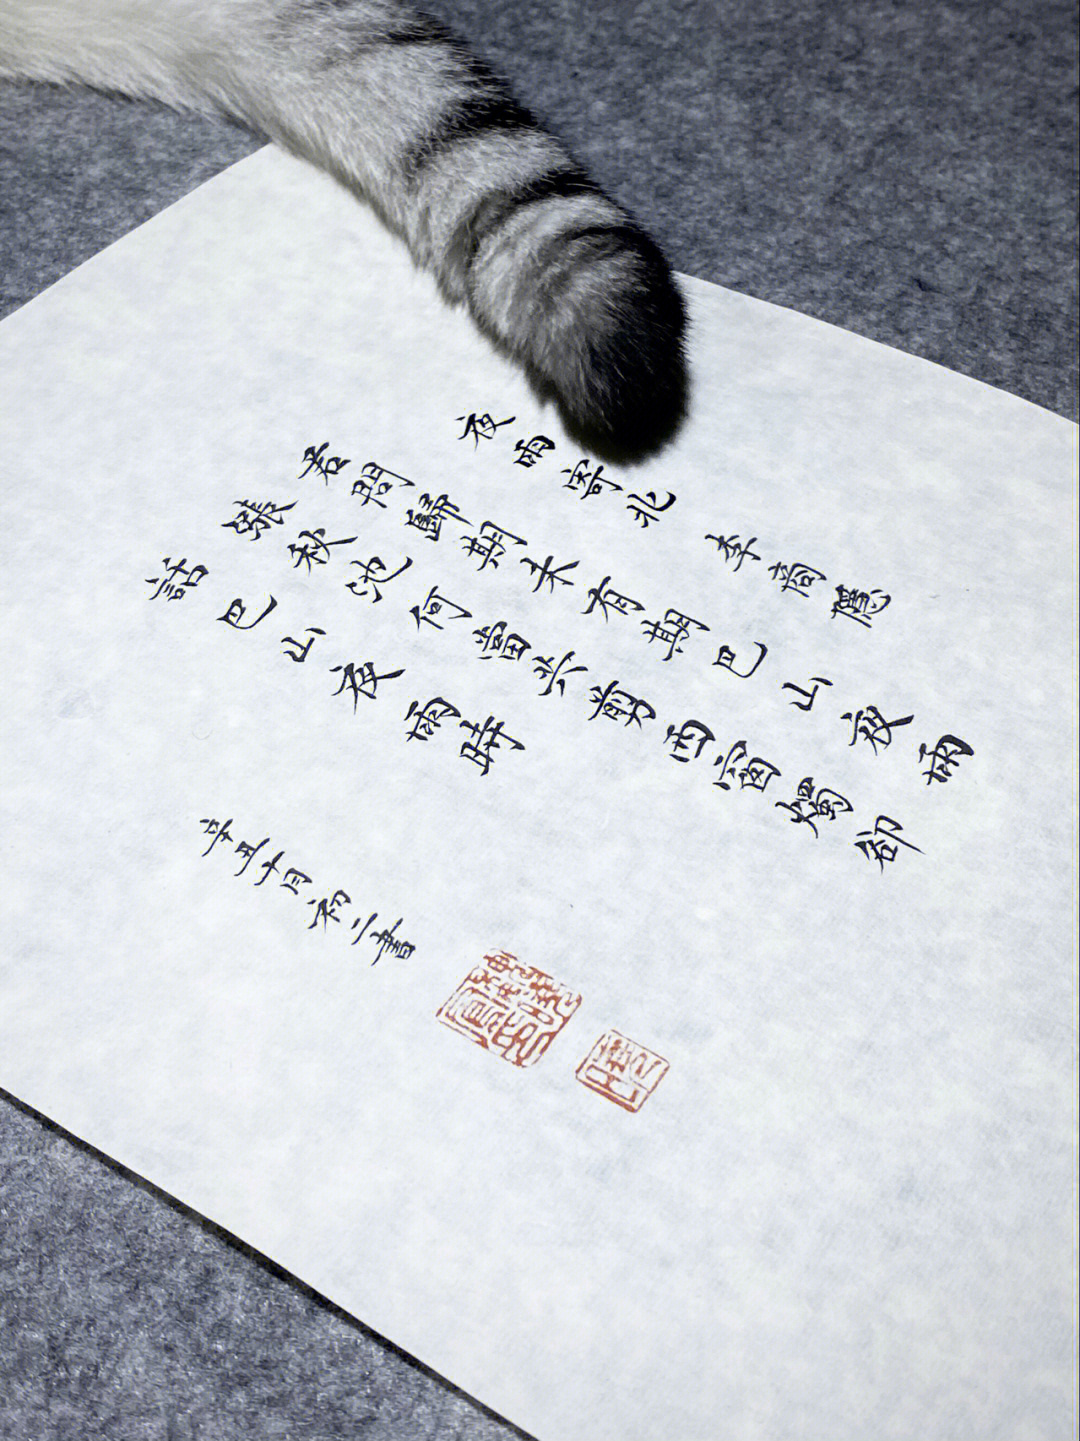 夜雨寄北 李商隱
君問歸期未有期巴山夜雨
漲秋池何當共剪西窗燭卻
話巴山夜雨時
辛丑十月初二書